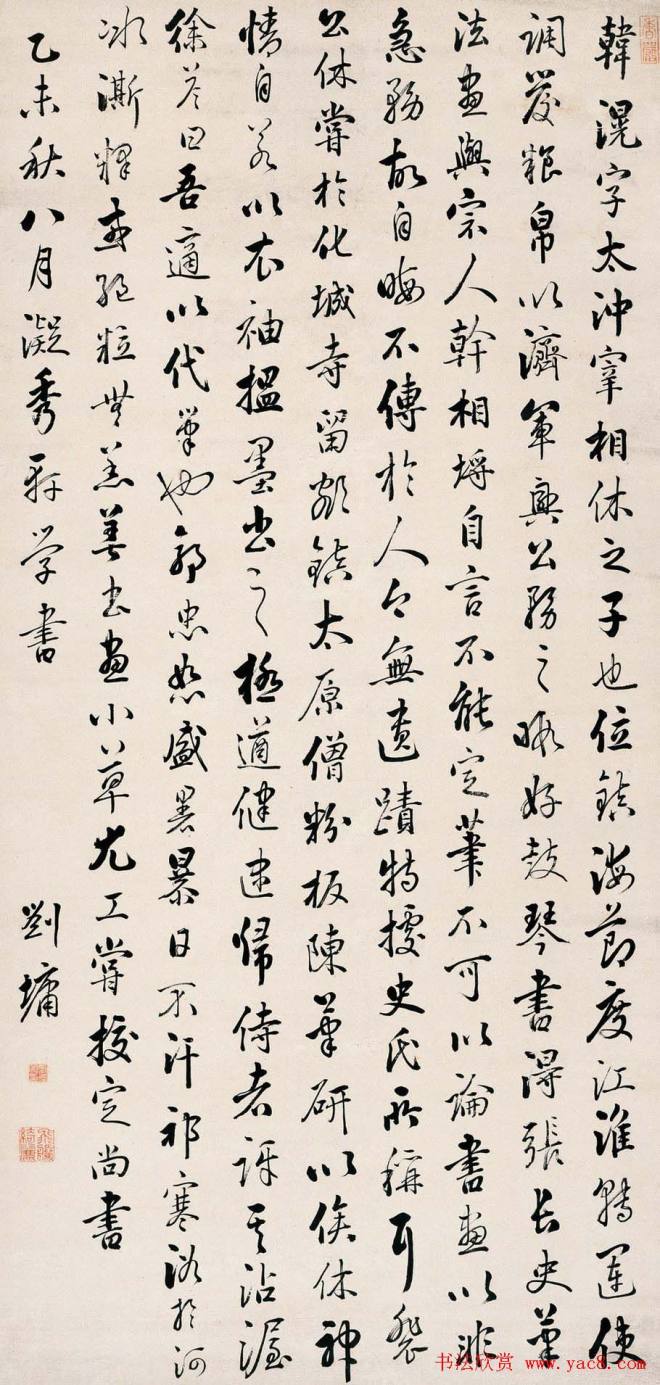 韓滉字太沖宰相休之子也位鎮海節度江淮轉運使
調發粮帛以濟軍興公務之暇好鼓琴書得張長史筆
法畫與宗人幹相埒自言不能定筆不可以論書畫以非
急務故自晦不傳於人今無遺蹟特據史氏所稱耳裴
公休嘗於化城寺留題鎮太原僧粉板陳筆研以俟休神
情自若以衣袖揾墨書之極遒健逮歸侍者訝其沾渥
徐答曰吾適以代筆也郭忠恕盛暑暴日不汗祁寒浴於河
冰澌釋或絕粒無恙善書畫小草尤工嘗校定尚書
乙未秋八月凝秀軒學書
劉墉
书法欣赏 www.yac8.com